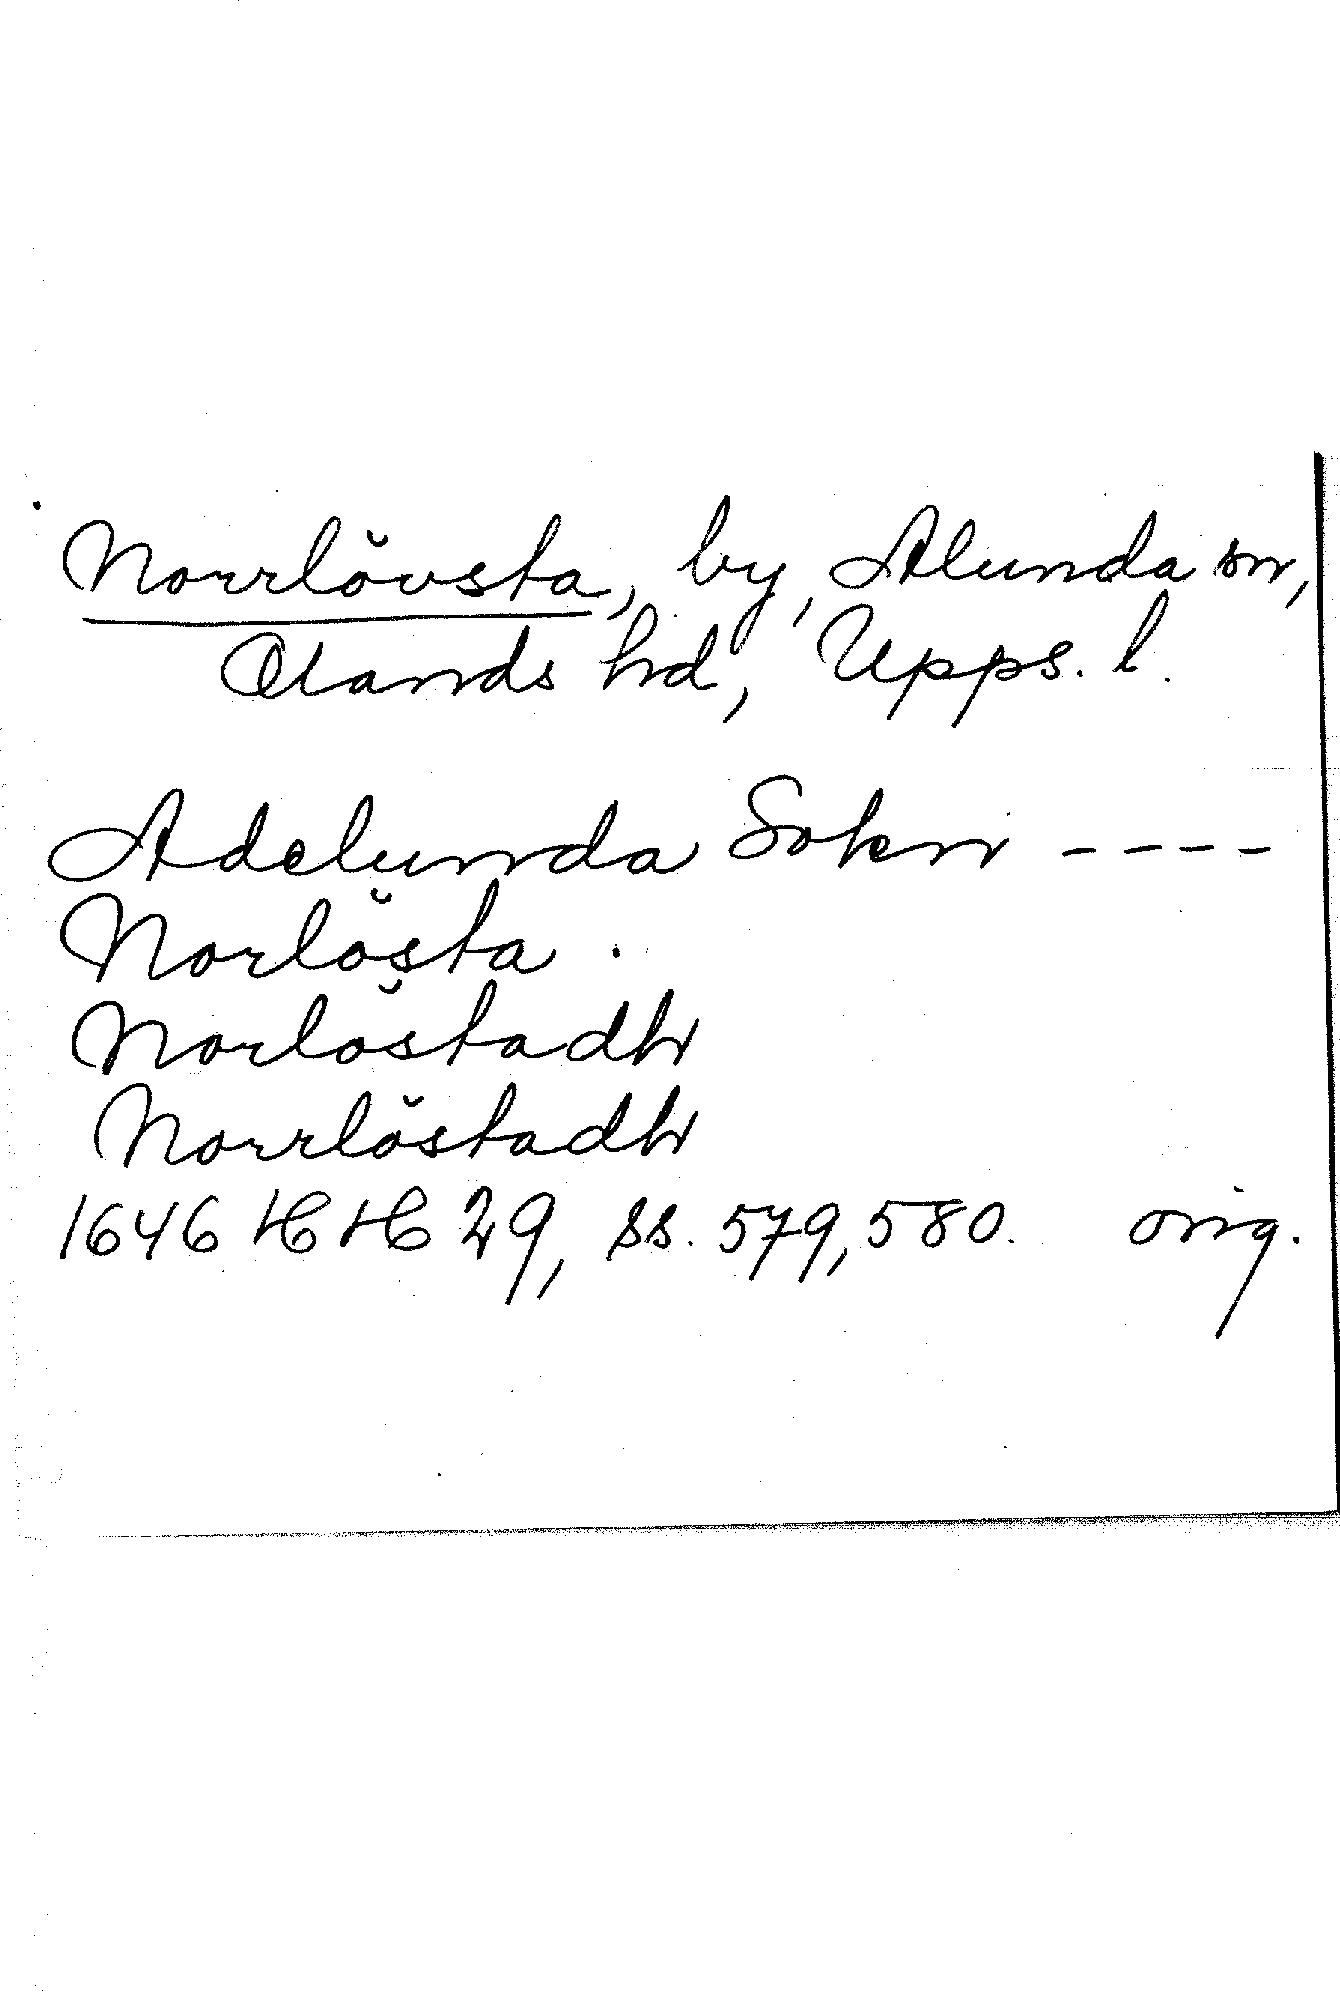 Norrlövsta, by, Alunda sn,
Olands hd, Upps. l.
Adelunda Sokn ----
Norlösta.
Norlöstadh
Norrlöstadh
1646 HH 29, ss. 579, 580. orig.